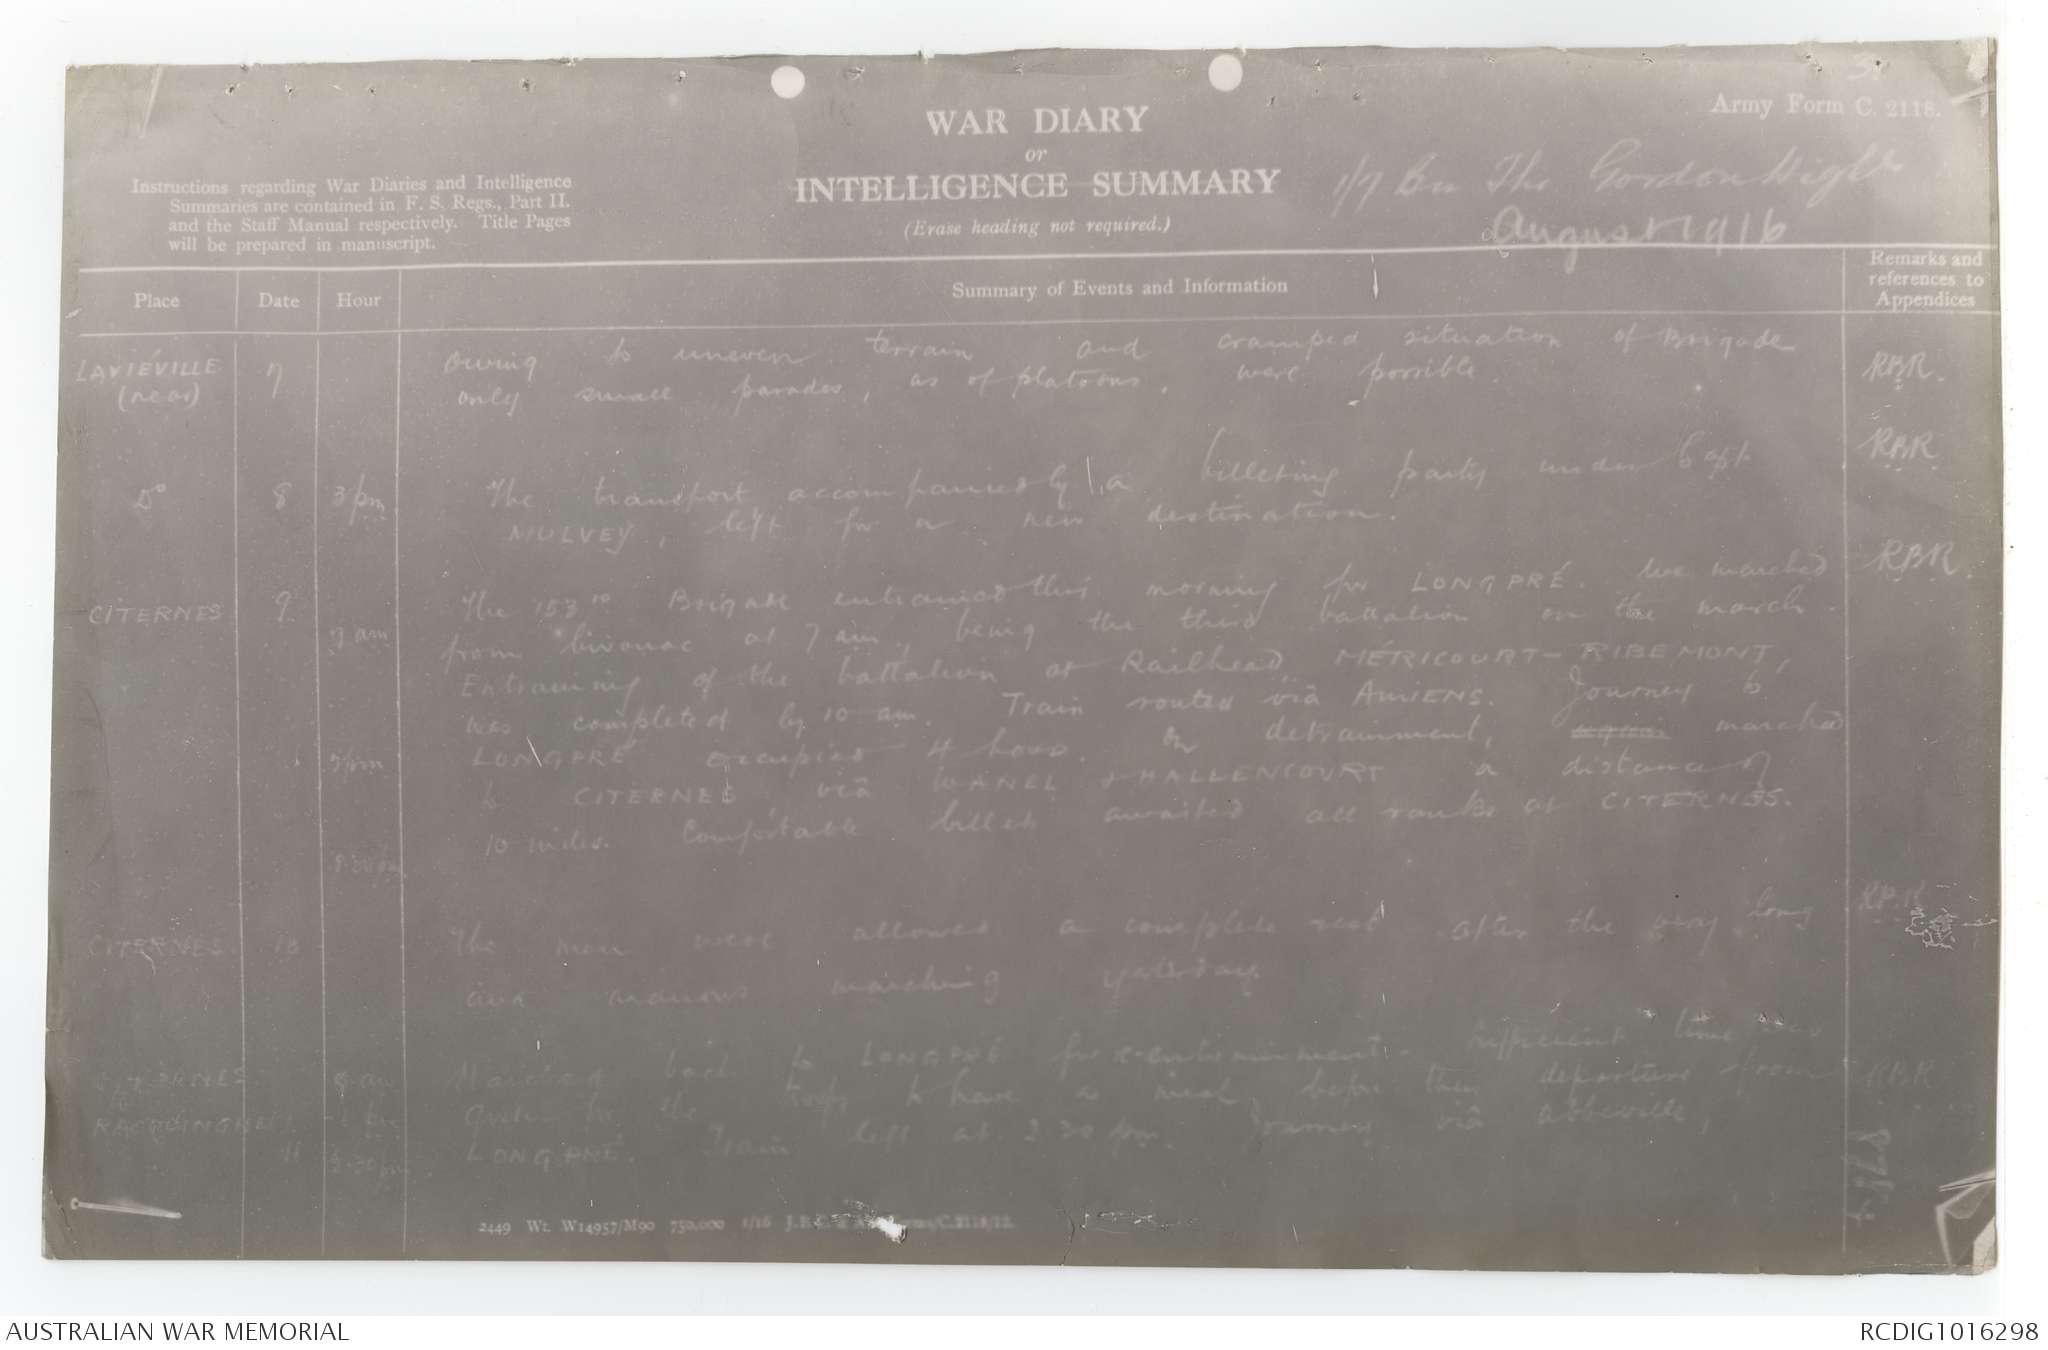 3
Army Form C. 2118.
WAR DIARY
or
INTELLIGENCE SUMMARY
(Erase heading not required.)
Instructions regarding War Diaries and Intelligence
Summaries are contained in F. S. Regs., Part II.
and the Staff Manual respectively. Title Pages
will be prepared in manuscript.
1/7 Bn The Gordon Highrs
August 1916
Place
Date
Hour
Summary of Events and Information
Remarks and
references to
Appendices
LAVIÉVILLE
(near)
7
owing to uneven terrain and cramped situation of Brigade
only small parades, as of platoons, were possible.
RBR.
Do
8
3 pm
The transport accompanied by a billeting party under Capt
MULVEY, left for a new destination.
RBR
CITERNES
9
The 153rd Brigade entrained this morning for LONGPRÉ. We marched
7 am
from bivouac at 7 am, being the third battalion on the march.
Entraining of the battalion at Railhead, MÉRICOURT-RIBEMONT,
was completed by 10 am. Train routed viâ AMIENS. Journey to
LONGPRÉ occupied 4 hours. On detrainment, marched
to CITERNES viâ WANEL & HALLENCOURT a distance of
10 miles. Comfortable billets awaited all ranks at CITERNES.
RBR.
CITERNES.
10
The men were allowed a complete rest after the very long
and arduous marching yesterday.
RBR
CITERNES
to
RACQUINGHEM
11
8 am
2.30 pm
Marched back to LONGPRÉ for re-entrainment. Sufficient time was
given for the troops to have a meal before their departure from
LONGPRÉ. Train left at 2.30 pm. Journey viâ Abbeville,
RBR
2449 Wt. W14957/M90 750,000 1/16 J.B.C. & A. Forms/C.2118/12.
AUSTRALIAN WAR MEMORIAL
RCDIG1016298